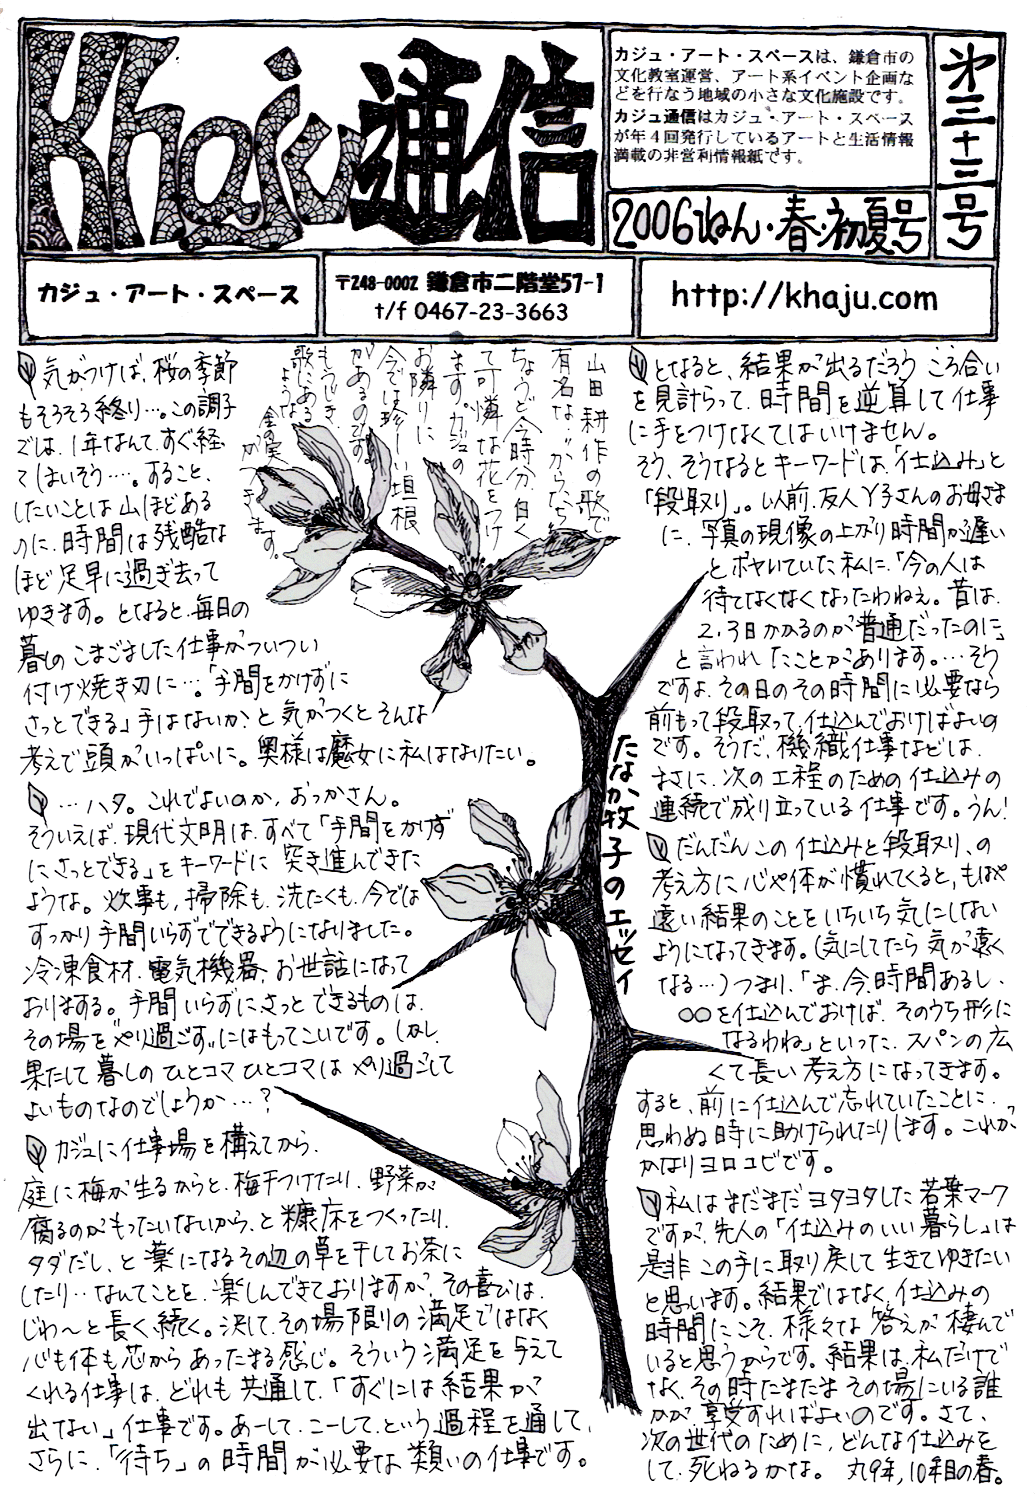 Khaju通信
カジュ・アート・スペースは、鎌倉市の
文化教室運営、アート系イベント企画な
どを行なう地域の小さな文化施設です。
カジュ通信はカジュ・アート・スペース
が年4回発行しているアートと生活情報
満載の非営利情報紙です。
2006ねん・春・初夏号
第三十三号
カジュ・アート・スペース
〒248-0002 鎌倉市二階堂57-1
t/f 0467-23-3663
http://khaju.com
気がつけば、桜の季節
もそろそろ終り…。この調子
では、1年なんて、すぐ経
てしまいそう…。すること、
したいことは山ほどある
のに、時間は残酷な
ほど足早に過ぎ去って
ゆきます。となると、毎日の
暮しのこまごました仕事がついつい
付け焼き刃に…。「手間をかけずに
さっとできる」手はないか?と気がつくとそんな
考えで頭がいっぱいに。奥様は魔女に私はなりたい。
…ハタ。これでよいのか、おっかさん。
そういえば、現代文明は、すべて「手間をかけず
にさっとできる」をキーワードに突き進んできた
ような。炊事も、掃除も、洗たくも、今では
すっかり手間いらずでできるようになりました。
冷凍食材、電気機器、お世話になって
おりまする。手間いらずにさっとできるものは、
その場を〝やり過ごす〟にはもってこいです。しかし、
果たして暮しのひとコマひとコマはやり過ごして
よいものなのでしょうか…?
カジュに仕事場を構えてから、
庭に梅が生るからと、梅干つけたり、野菜が
腐るのがもったいないから、と糠床をつくったり、
タダだし、と薬になるその辺の草を干してお茶に
したり…なんてことを、楽しんできておりますが、その喜びは、
じわ〜と長く続く。決して、その場限りの満足ではなく
心も体も芯からあったまる感じ。そういう満足を与えて
くれる仕事は、どれも共通して、「すぐには結果が
出ない」仕事です。あーして、こーして、という過程を通して、
さらに、「待ち」の時間が必要な類いの仕事です。
山田耕作の歌で
有名な、〝からたち〟
ちょうど今時分、白く
て可憐な花をつけ
ます。カジュの
お隣りに
今では珍しい垣根
があるのです。
もうじき、
歌にある
ような
金の実
がつきます。
たなか牧子のエッセイ
となると、結果が出るだろうころ合い
を見計らって、時間を逆算して仕事
に手をつけなくてはいけません。
そう、そうなるとキーワードは、「仕込み」と
「段取り」。以前、友人Y子さんのお母さま
に、写真の現像の上がり時間が遅い
とボヤいていた私に、「今の人は
待てなくなくなったわねぇ。昔は、
2、3日かかるのが普通だったのに」
と言われたことがあります。…そう
ですよ、その日のその時間に必要なら
前もって段取って、仕込んでおけばよいの
です。そうだ、機織仕事などは、
まさに、次の工程のための仕込みの
連続で成り立っている仕事です。うん!
だんだんこの仕込みと段取り、の
考え方に心や体が慣れてくると、もはや
遠い結果のことをいちいち気にしない
ようになってきます。(気にしてたら気が遠く
なる…)つまり、「ま、今、時間あるし、
○○を仕込んでおけば、そのうち形に
なるわね」といった、スパンの広
くて長い考え方になってきます。
すると、前に仕込んで忘れていたことに、
思わぬ時に助けられたりします。これが、
かなりヨロコビです。
私はまだまだヨタヨタした若葉マーク
ですが、先人の「仕込みのいい暮らし」は
是非この手に取り戻して生きてゆきたい
と思います。結果ではなく、仕込みの
時間にこそ、様々な答えが棲んで
いると思うからです。結果は、私だけで
なく、その時たまたまその場にいる誰
かが、享受すればよいのです。さて、
次の世代のために、どんな仕込みを
して、死ねるかな。 丸9年、10年目の春。